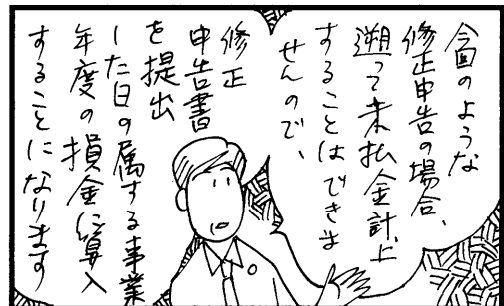 今回のような
修正申告の場合、
遡って未払金計上
することはできま
せんので、
修正
申告書
を提出
した日の属する事業
年度の損金に算入
することになります